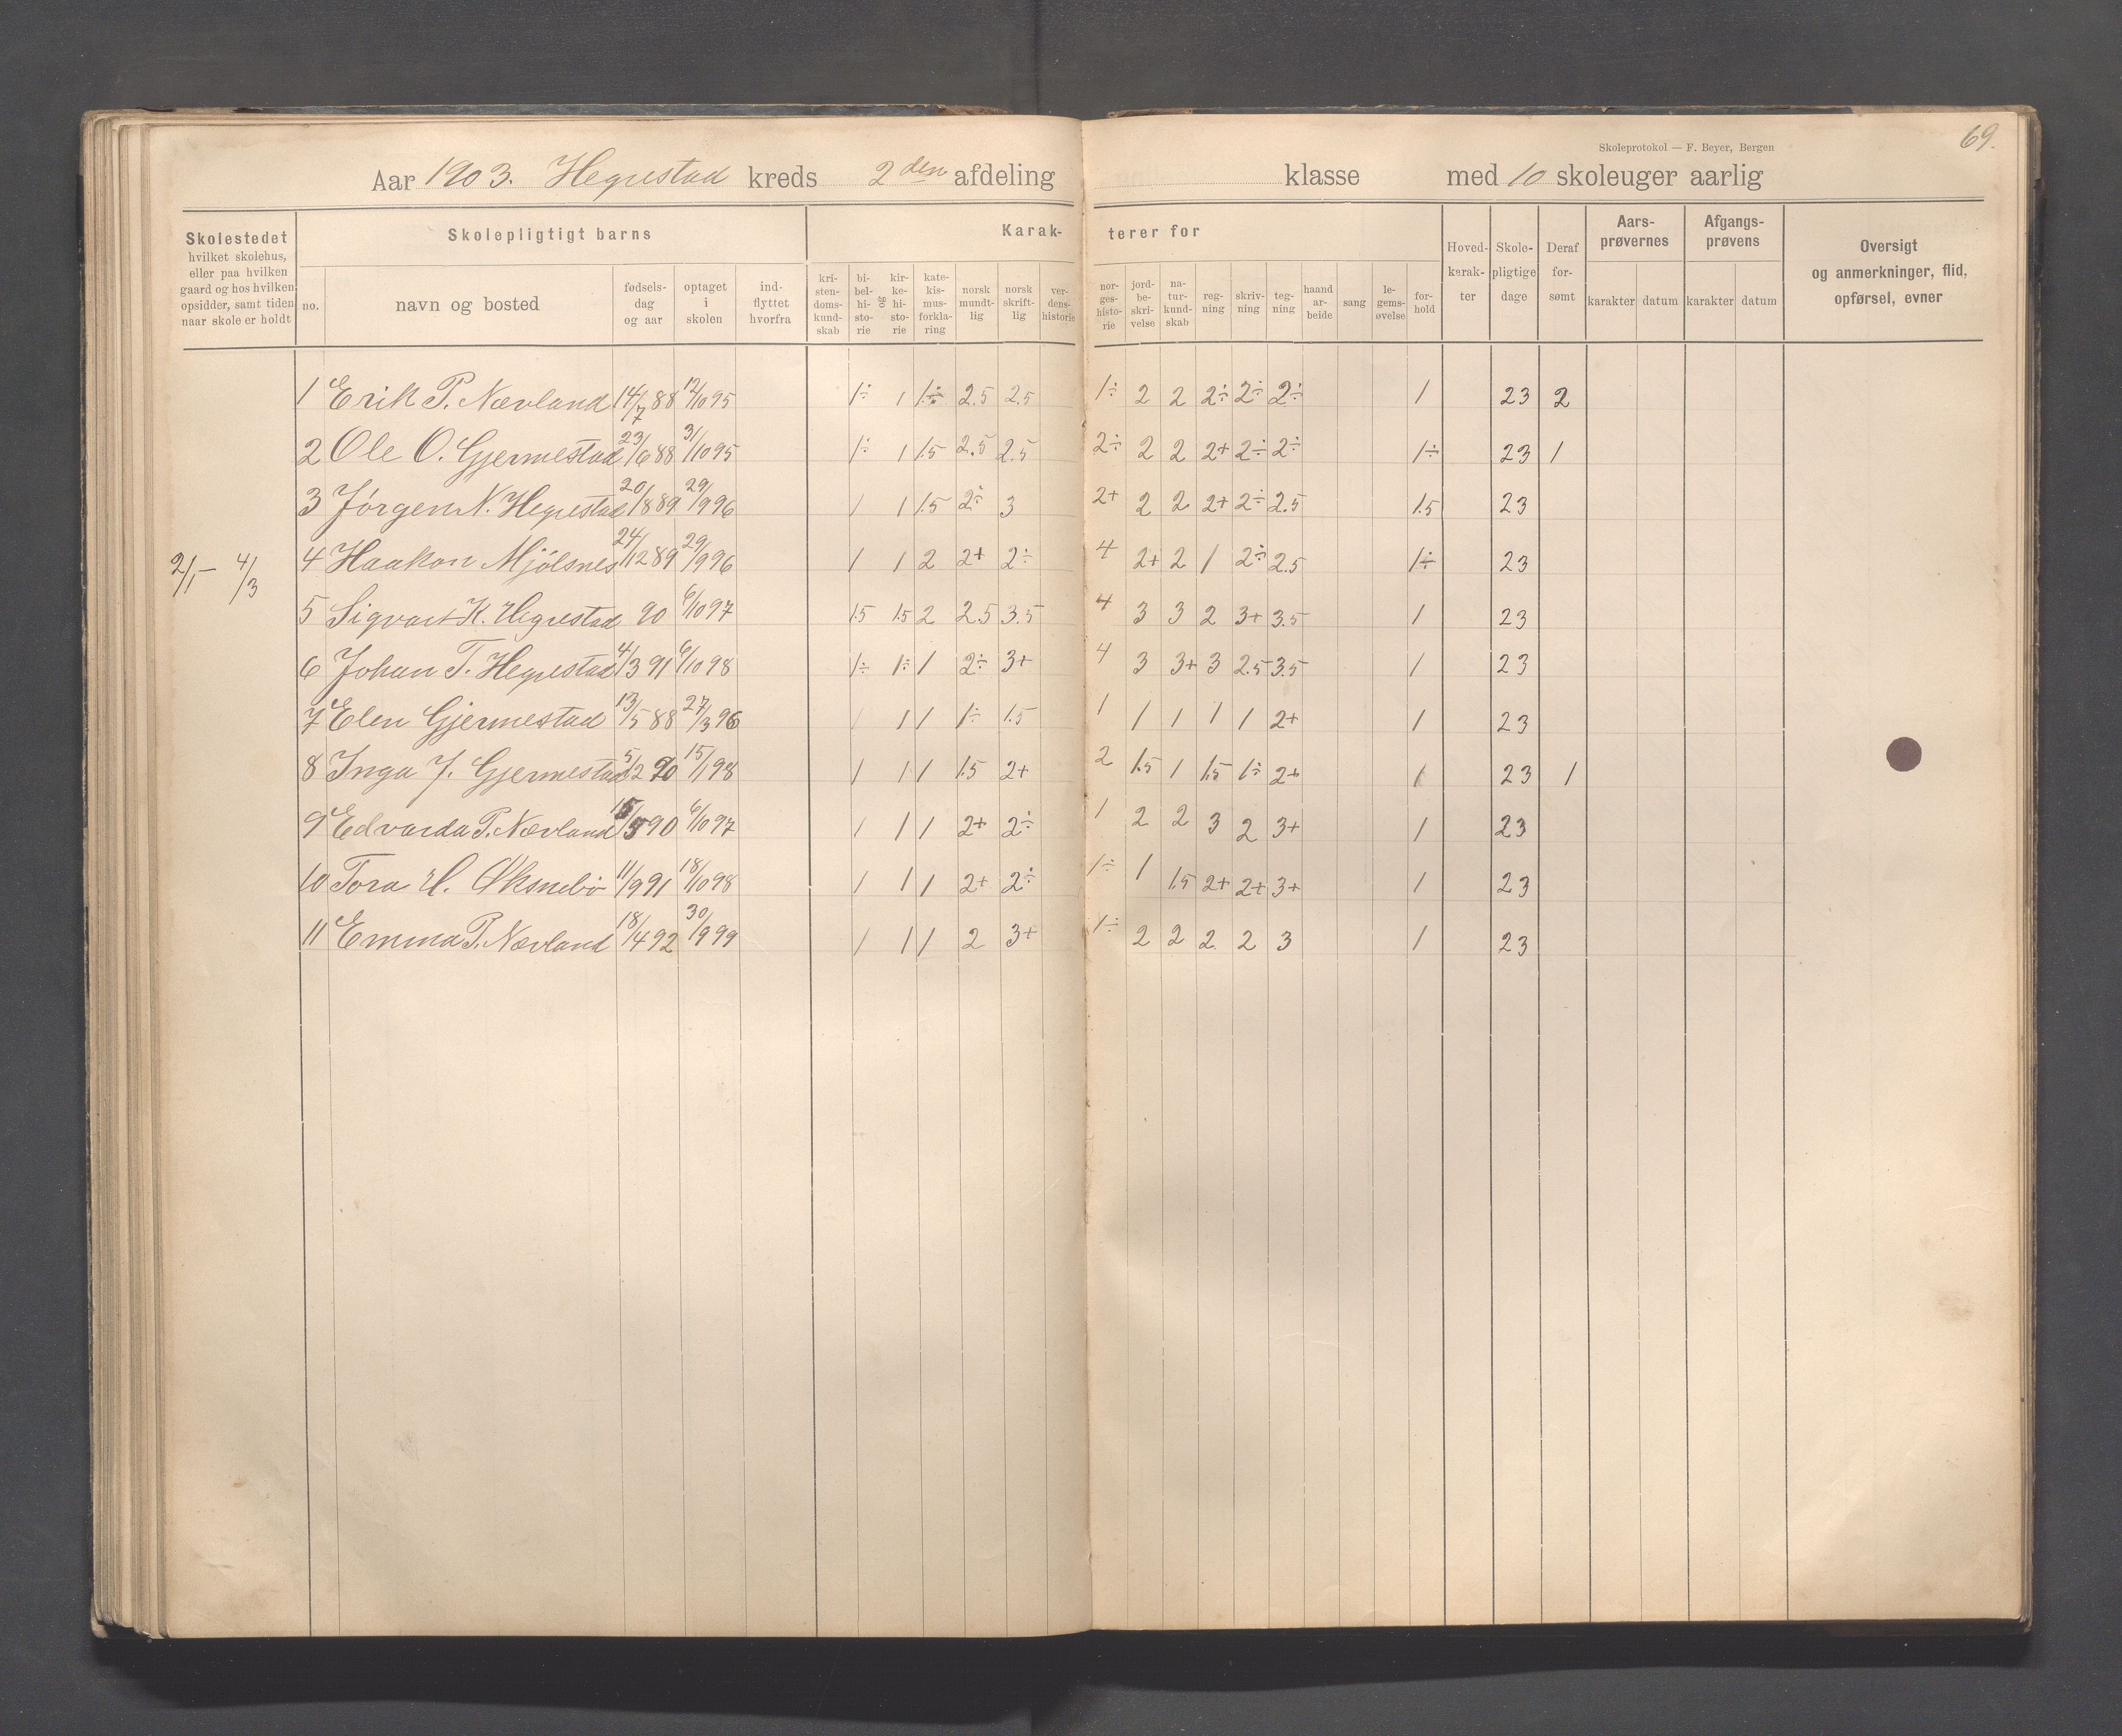 69.
Skoleprotokol — F. Beyer, Bergen
Aar 1903. Hegrestad kreds 2den afdeling klasse med 10 skoleuger aarlig
Skolestedet hvilket skolehus, eller paa hvilken gaard og hos hvilken opsidder, samt tiden naar skole er holdt
Skolepligtigt barns
Karak- terer for
no. navn og bosted fødsels- dag og aar optaget i skolen ind- flyttet hvorfra
kri- sten- doms- kund- skab bi- bel- hi- sto- rie og kir- ke- hi- sto- rie kate- kis- mus- forkla- ring norsk mundt- lig norsk skrift- lig ver- dens- historie
nor- ges- histo- rie jord- be- skri- velse na- tur- kund- skab reg- ning skriv- ning teg- ning haand ar- beide sang le- gems- øvelse for- hold
Hoved- karak- ter Skole- pligtige dage Deraf for- sømt
Aars- prøvernes karakter datum
Afgangs- prøvens karakter datum
Oversigt og anmerkninger, flid, opførsel, evner
1 Erik P. Nævland 14/7 88 12/10 95 1÷ 1 1÷ 2.5 2.5 1÷ 2 2 2÷ 2÷ 2÷ 1 23 2
2 Ole O. Gjermestad 23/6 88 31/10 95 1÷ 1 1.5 2.5 2.5 2÷ 2 2 2+ 2÷ 2÷ 1÷ 23 1
3 Jörgen N. Hegrestad 20/8 89 29/9 96 1 1 1.5 2÷ 3 2+ 2 2 2+ 2÷ 2.5 1.5 23
2/1 — 4/3
4 Haakon Mjölsnes 24/12 89 29/9 96 1 1 2 2+ 2÷ 4 2+ 2 1 2÷ 2.5 1÷ 23
5 Sigvart K. Hegrestad 90 6/10 97 1.5 1.5 2 2.5 3.5 4 3 3 2 3+ 3.5 1 23
6 Johan T. Hegrestad 4/3 91 6/10 98 1÷ 1÷ 1 2÷ 3+ 4 3 3+ 3 2.5 3.5 1 23
7 Elen Gjermestad 13/5 88 27/3 96 1 1 1 1÷ 1.5 1 1 1 1 1 2+ 1 23
8 Inga J. Gjermestad 5/12 90 15/1 98 1 1 1 1.5 2+ 2 1.5 1 1.5 1÷ 2+ 1 23 1
9 Edvarda P. Nævland 15/5 90 6/10 97 1 1 1 2+ 2÷ 1 2 2 3 2 3+ 1 23
10 Tora H. Øksnebö 11/9 91 18/10 98 1 1 1 2+ 2÷ 1÷ 1 1.5 2+ 2+ 3+ 1 23
11 Emma P. Nævland 18/4 92 30/9 99 1 1 1 2 3+ 1÷ 2 2 2 2 3 1 23